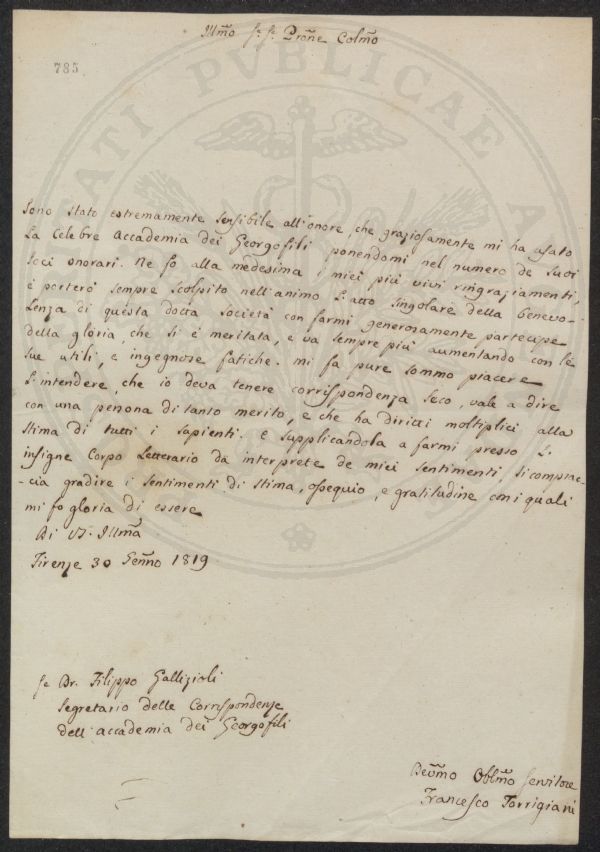 Illm̃o Sr. Sr. Prõne Colmõ
785
Sono stato estremamente sensibile all'onore, che graziosamente mi ha usato
La Celebre Accademia dei Georgofili ponendomi nel numero de Suoi
Soci onorari. Ne fo alla medesima i miei più vivi ringraziamenti,
e porterò sempre scolpito nell'animo L'atto singolare della benevo-
Lenza di questa dotta Società con farmi generosamente partecipe
della gloria, che si è meritata, e va sempre più aumentando con le
sue utili, e ingegnose fatiche. mi fa pure sommo piacere
L'intendere, che io deva tenere corrispondenza seco, vale a dire
con una persona di tanto merito, e che ha diritti moltiplici alla
Stima di tutti i Sapienti. e Supplicandola a farmi presso L'-
insigne Corpo Letterario da interprete de miei Sentimenti, si compiac-
-cia gradire i Sentimenti di Stima, ossequio, e gratitudine con i quali
mi fo gloria di essere
Di VS. Illmã
Firenze 30 Genñο 1819
Sr. Dr. Filippo Gallizioli
Segretario delle Corrispondenze
dell'accademia dei Georgofili
Devm̃o Obblm̃o Servitore
Francesco Torrigiani
PVBLICAE